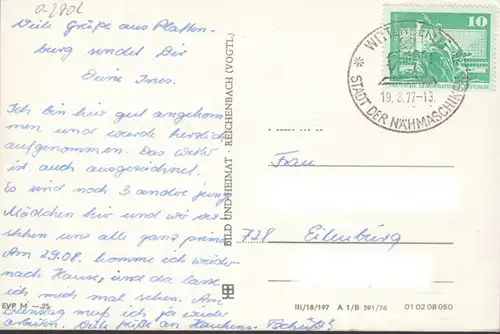 Viele Grüße aus Platten-
burg sendet Dir
Deine Ines.
Ich bin hier gut angekom-
men und wurde herzlich
aufgenommen. Das Wetter
ist auch ausgezeichnet.
Es sind noch 3 andre junge
Mädchen hier und wir ver-
stehen uns alle ganz prima.
Am 29.08. komme ich wieder
nach Hause, und da lasse
ich mich mal sehen. Am
Dienstag muß ich ja wieder
arbeiten. Viele Grüße an
Tschüß
EVP M -,25
BILD UND HEIMAT · REICHENBACH (VOGTL)
10
STADT DER NÄHMASCHINEN
19.8.77-13
Frau
728 Eilenburg
III/18/197 A 1/B 591/76 01 02 08 050